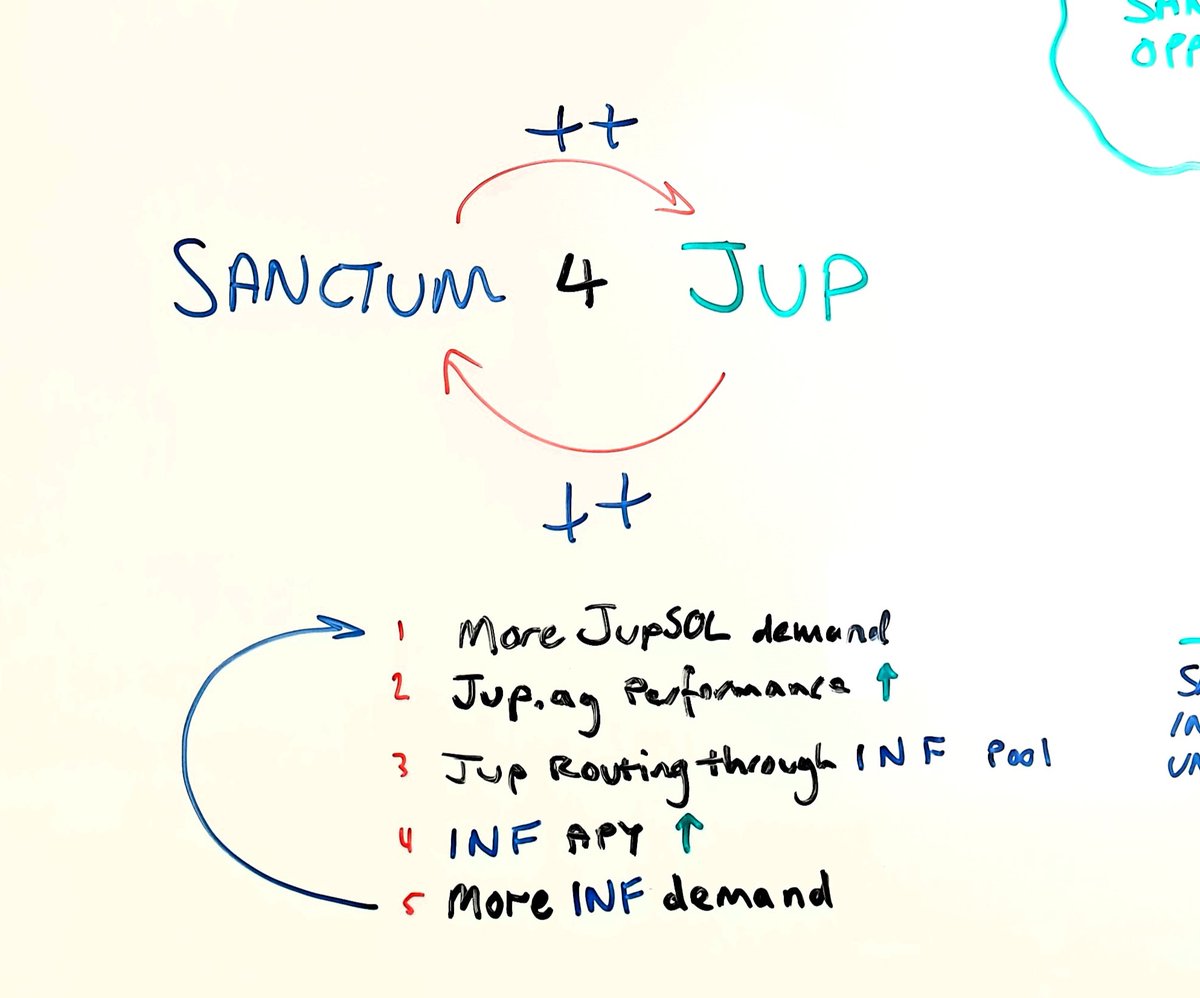 SAN
OPP
++
SANCTUM 4 JUP
++
1 More JupSOL demand
2 Jup.ag Performance ↑
3 Jup Routing through INF Pool
4 INF APY ↑
5 More INF demand
IN
UN